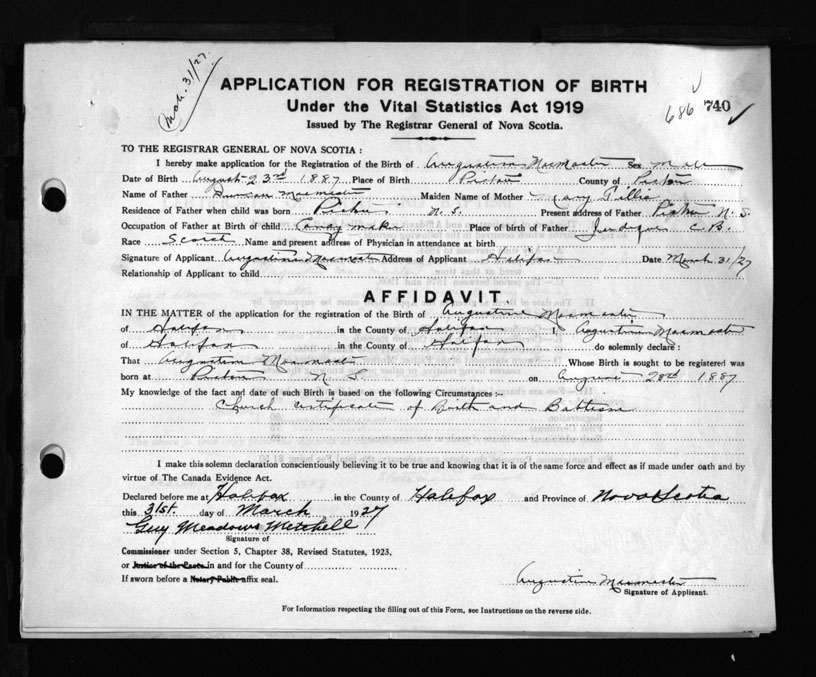 Mch. 31/27.
APPLICATION FOR REGISTRATION OF BIRTH
Under the Vital Statistics Act 1919
Issued by The Registrar General of Nova Scotia.
686 740
TO THE REGISTRAR GENERAL OF NOVA SCOTIA :
I hereby make application for the Registration of the Birth of Augustine Macmaster Sex Male
Date of Birth August 23rd 1887 Place of Birth Pictou County of Pictou
Name of Father Duncan Macmaster Maiden Name of Mother Mary Gillis
Residence of Father when child was born Pictou N. S. Present address of Father Pictou N. S.
Occupation of Father at Birth of child Candy Maker Place of birth of Father Judique C. B.
Race Scotch Name and present address of Physician in attendance at birth
Signature of Applicant Augustine Macmaster Address of Applicant Halifax Date March 31/27
Relationship of Applicant to child
AFFIDAVIT.
IN THE MATTER of the application for the registration of the Birth of Augustine Macmaster
of Halifax in the County of Halifax I, Augustine Macmaster
of Halifax in the County of Halifax do solemnly declare :
That Augustine Macmaster Whose Birth is sought to be registered was
born at Pictou N. S. on August 23rd 1887
My knowledge of the fact and date of such Birth is based on the following Circumstances :-
Church certificate of Birth and Battism
I make this solemn declaration conscientiously believing it to be true and knowing that it is of the same force and effect as if made under oath and by
virtue of The Canada Evidence Act.
Declared before me at Halifax in the County of Halifax and Province of Nova Scotia
this 31st. day of March 1927
Guy Meadows Mitchell
Signature of
Commissioner under Section 5, Chapter 38, Revised Statutes, 1923.
or Justice of the Peace in and for the County of
If sworn before a Notary Public affix seal.
Augustine Macmaster
Signature of Applicant.
For Information respecting the filling out of this Form, see Instructions on the reverse side.